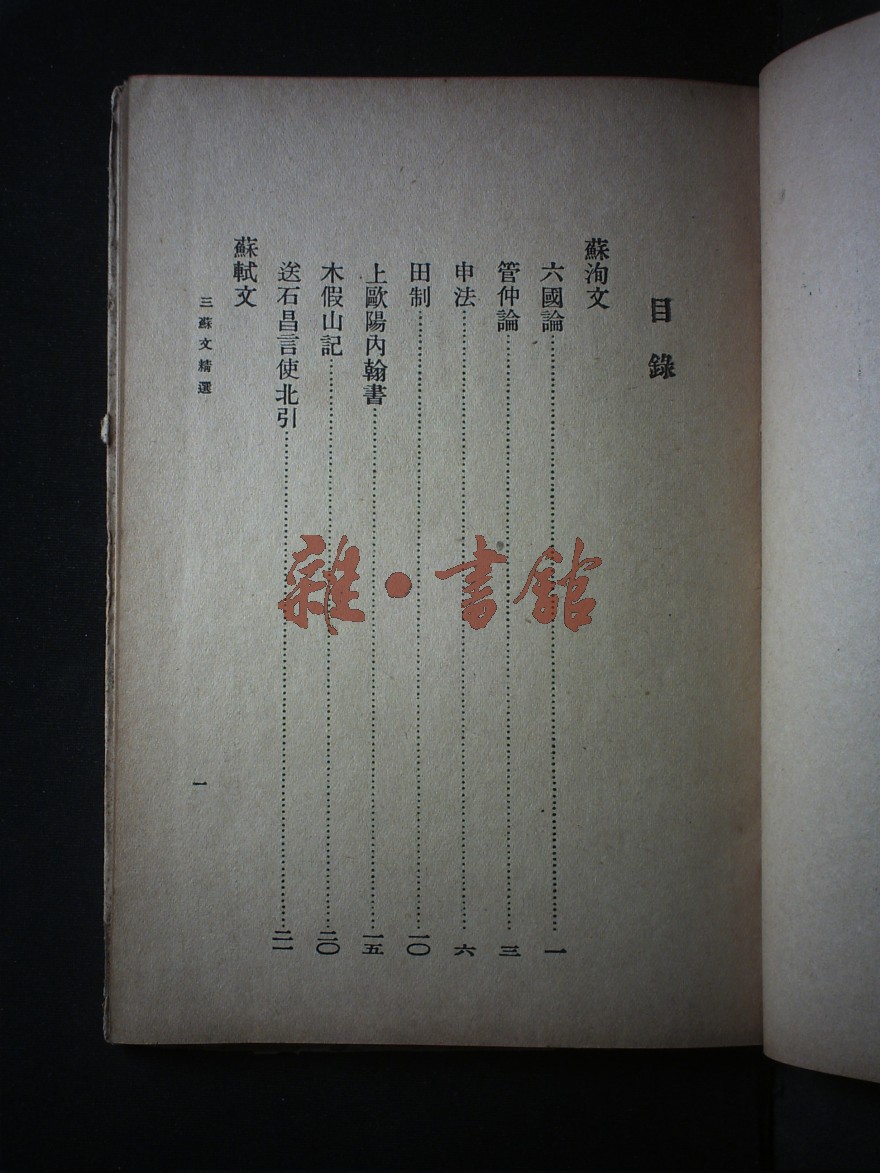 目錄
蘇洵文
六國論…………一
管仲論…………三
申法…………六
田制…………一〇
上歐陽內翰書…………一五
木假山記…………二〇
送石昌言使北引…………二一
蘇軾文
三蘇文精選
一
雜·書館